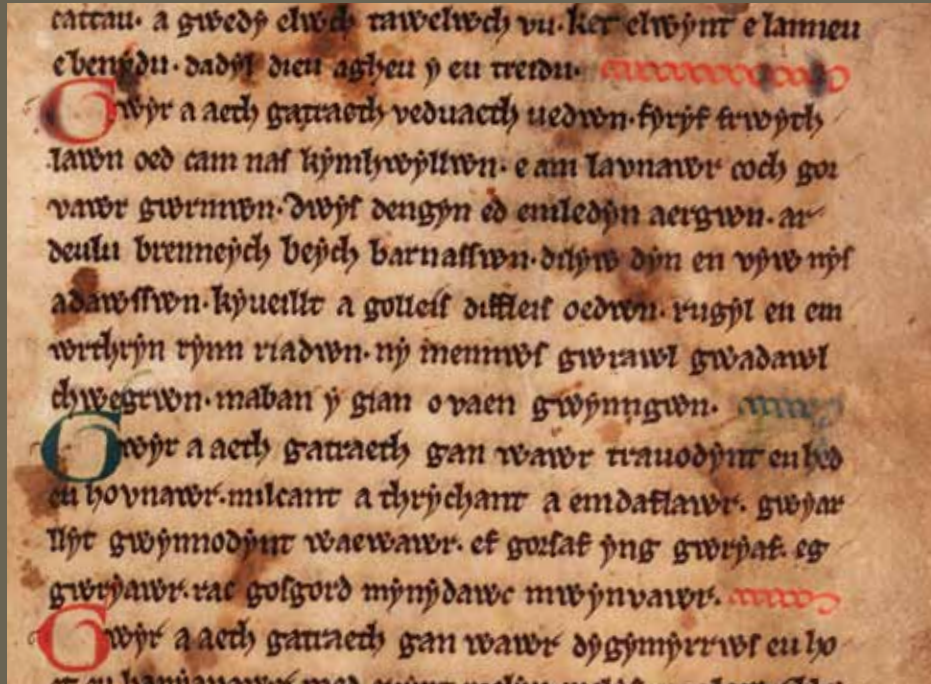 cattau. a gwedẏ elwch tawelwch vu. ket elwẏnt e lanneu
e benẏdu. dadẏl dieu agheu ẏ eu treidu.
Gwẏr a aeth gatraeth veduaeth uedwn. fẏrẏf frwẏth
lawn oed cam nas kẏmhwẏllwn. e am lavnawr coch gor
vawr gwrmwn. dwẏs dengẏn ed emledẏn aergwn. ar
deulu brenneẏch beẏch barnasswn. dilẏw dẏn en vẏw nẏs
adawsswn. kẏueillt a golleis diffleis oedwn. rugẏl en em
wrthrẏn rẏnn riadwn. nẏ mennws gwrawl gwadawl
chwegrwn. maban ẏ gian o vaen gwẏnngwn.
Gwẏr a aeth gatraeth gan wawr trauodẏnt eu hed
eu hovnawr. milcant a thrẏchant a emdaflawr. gwẏar
llẏt gwẏnnodẏnt waewawr. ef gorsaf ẏng gwrẏaf. eg
gwrẏawr. rac gosgord mẏnẏdawc mwẏnvawr.
Gwẏr a aeth gatraeth gan wawr dẏgẏmẏrrws eu ho